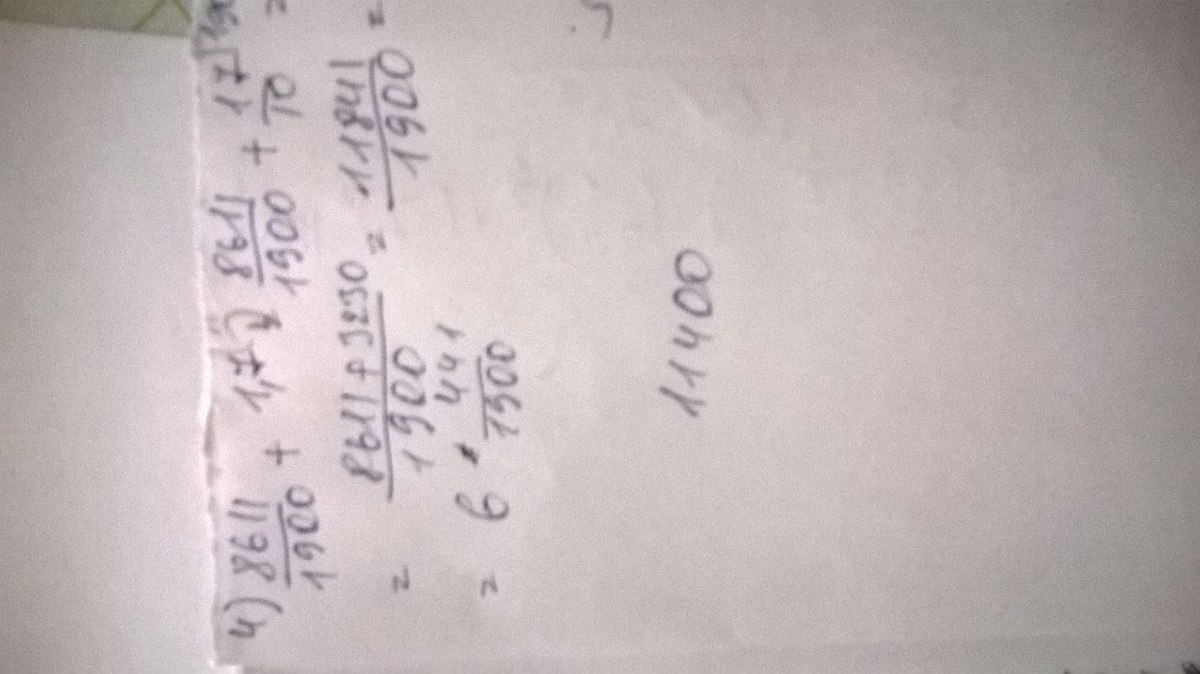 4) 8611/1900 + 1,7 = 8611/1900 + 17/10 =
= 8611+3230/1900 = 11841/1900 =
= 6 441/1900
11400